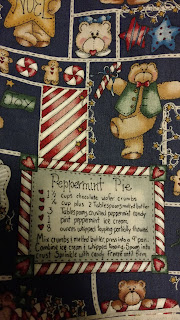 NOEL
Peppermint Pie
1½ cups chocolate wafer crumbs
¼ cup plus 2 Tablespoons melted butter
3 Tablespoons crushed peppermint candy
1 pint peppermint ice cream
8 ounces whipped topping partially thawed
Mix crumbs & melted butter, press into 9" pan.
Combine ice cream & whipped topping. Spoon into
crust. Sprinkle with candy. Freeze until firm.